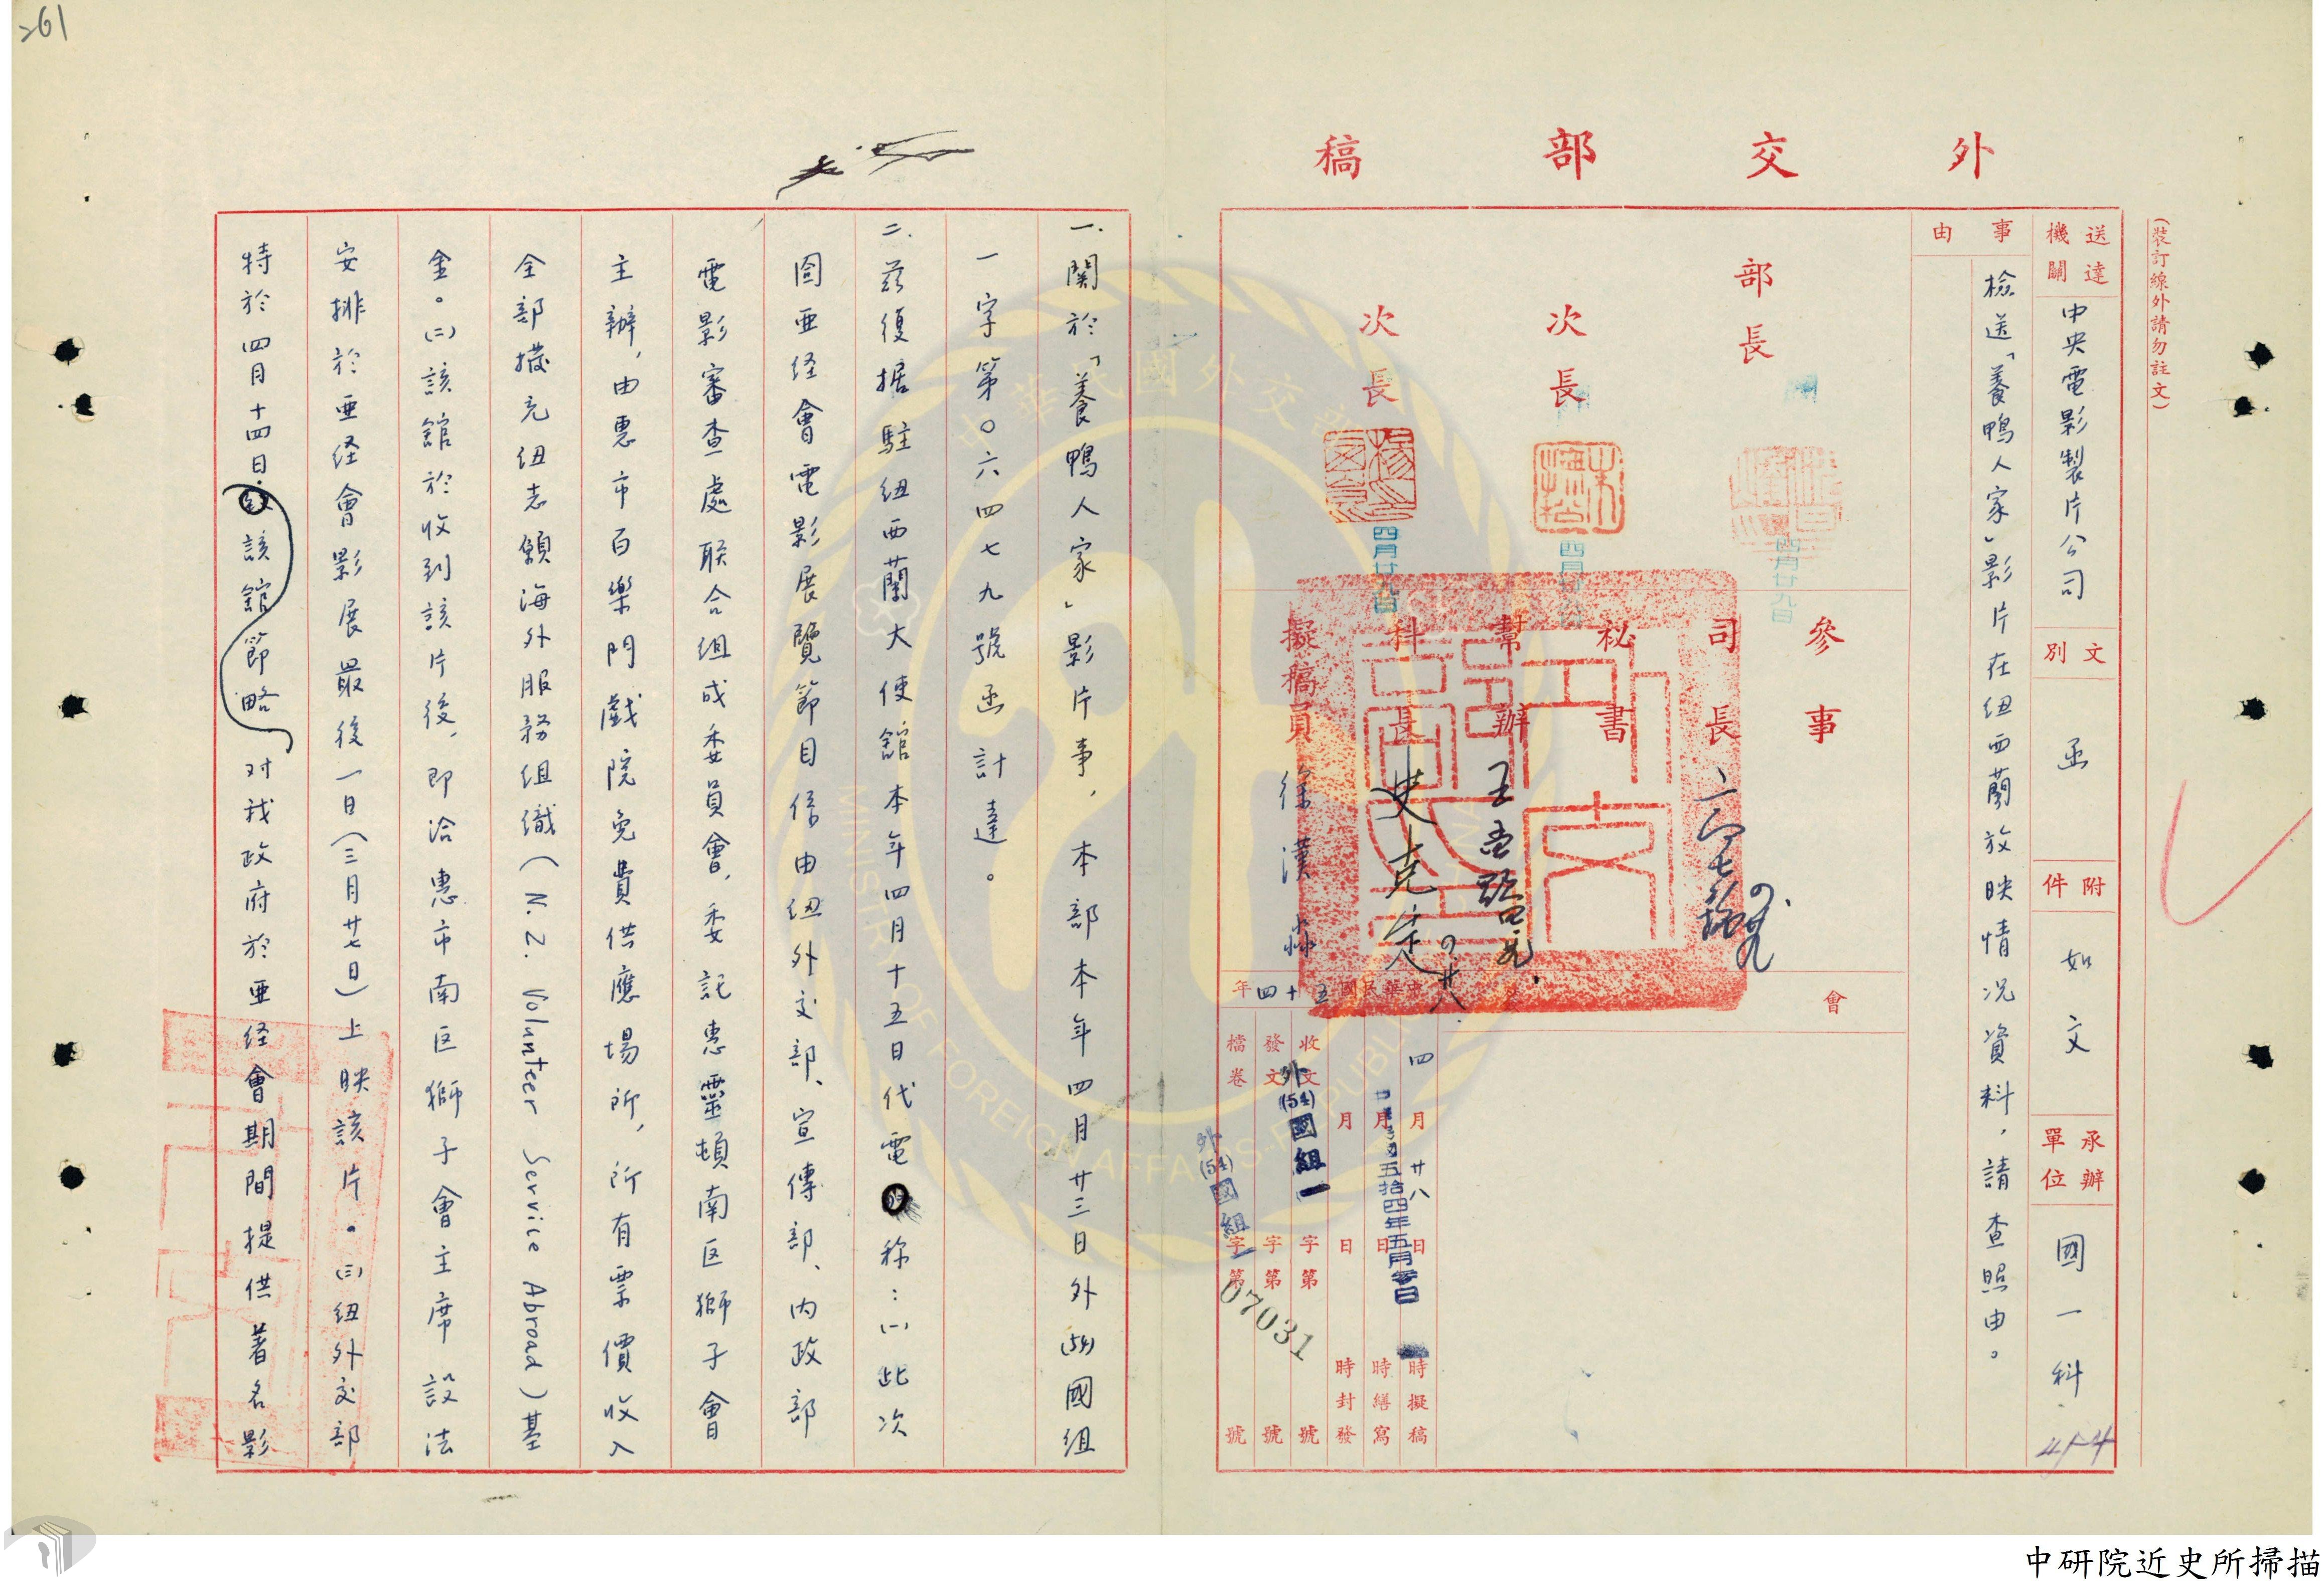 261
外交部稿
(裝訂線外請勿註文)
送達機關 中央電影製片公司 文別 函 附件 如文 承辦單位 國一科
事由 檢送「養鴨人家」影片在纽西蘭放映情况資料,請查照由。
部長
次長
次長
四月廿九日
四月廿九日
參事
司長
秘書
幫辦
科長 史克定
擬稿員 徐漢淼
會
中華民國五十四年
四月廿八日 時擬稿
月 日 時繕寫
五拾四年五月
月 日 時封發
收文 字第 號
發文 字第 號
檔卷 字第 號
外(54)國組一
外(54)國組一
07031
一.関於「養鴨人家」影片事,本部本年四月廿三日外(54)國組
一字第〇六四七九號函計達。
二.茲復据駐纽西蘭大使舘本年四月十五日代電称:(一)此次
亜经會電影展覽節目係由纽外交部、宣傳部、内政部
電影審查處联合组成委員會,委託惠靈頓南区獅子會
主辦,由惠市百樂門戯院免費供應場所,所有票價收入
全部撥充纽志願海外服務组織(N.Z. Volunteer Service Abroad)基
金。(二)該舘於收到該片後,即洽惠市南区獅子會主席設法
安排於亜经會影展最後一日(三月廿七日)上映該片。(三)纽外交部
特於四月十四日該舘節略对我政府於亜经會期間提供著名影
MINISTRY OF FOREIGN AFFAIRS REPUBLIC
中研院近史所掃描